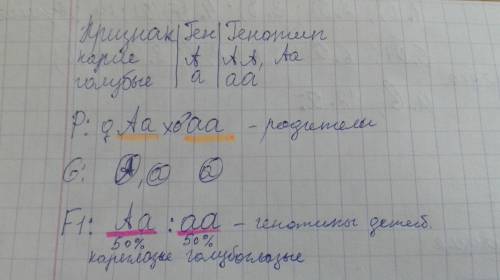 Признак | Ген | Генотип
карие | А | АА, Аа
голубые | а | аа
P: ♀ Аа х ♂ аа - родители
G: А, а а
F1: Аа : аа - генотипы детей.
50% 50%
кареглазые голубоглазые